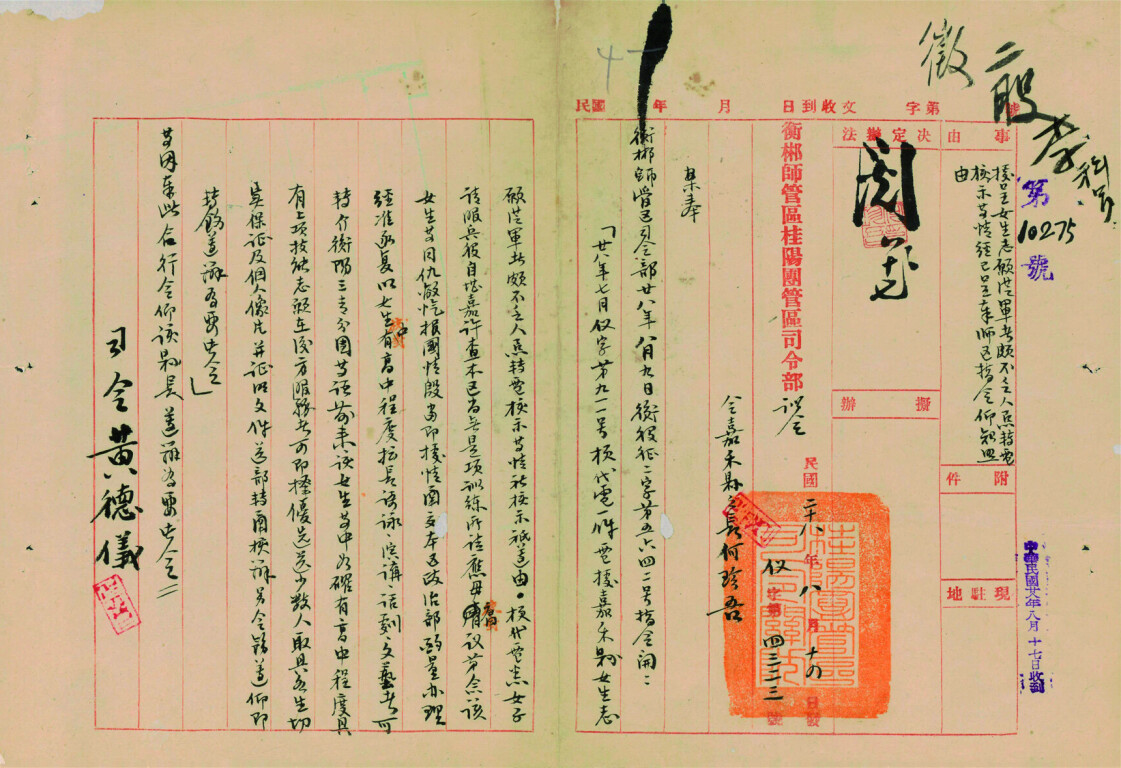 徵
二股
李科員
第
10275
號
中華民國廿八年八月十七日收到
號 第 字 文收到日 月 年 國民
事由
據呈女生志願從軍者頗不乏人無特電
核示等情經已呈奉師區指令仰知照
由
附件
現駐地
決定辦法
閱
擬辦
衡郴師管區桂陽團管區司令部
訓令
民國二十八年八月十四日發
役字第四三三三號
令嘉禾縣縣長何珍吾
案奉
衡郴師管區司令部廿八年八月九日衡役征二字第五六四二号指令開：
「廿八年七月役字第九一一号桉代電一件電據嘉禾縣女生志
願從軍者頗不乏人無特電核示等情祈核示祗遵由。桉代電悉女子
請服兵役自堪嘉許查本區尚無是項訓練所請應毋庸議第念該
女生等同仇敵愾報國情殷當即據情函交本區政治部酌量办理
經准函复以女生有高中程度擅長歌詠、演講、話劇、文藝者可
轉介衡陽三青分團等語前来該女生等中如確有高中程度具
有上項技能志願在後方服務者可即擇優先送少數人取具各生切
實保証及個人像片并証明文件送部轉函核辦另令飭遵仰即
轉飭遵辦為要此令」
等因奉此合行令仰該縣長遵辦為要此令＝
司令黃德儀